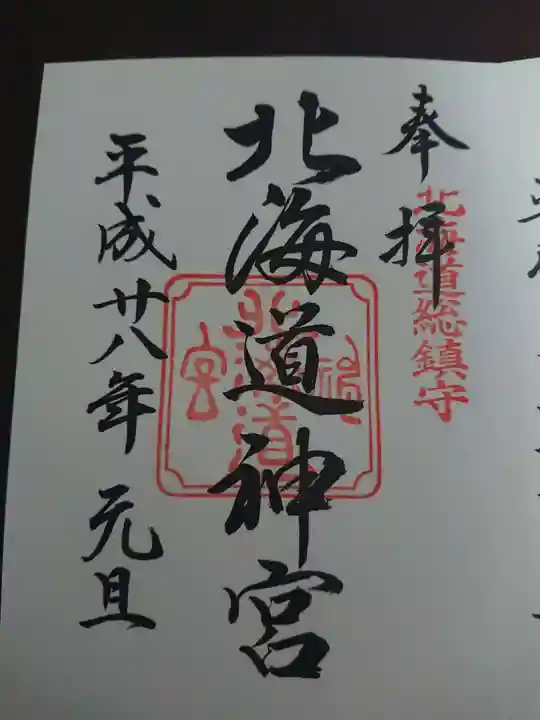 奉拝
北海道総鎮守
北海道神宮
北海道神宮
平成廿八年 元旦